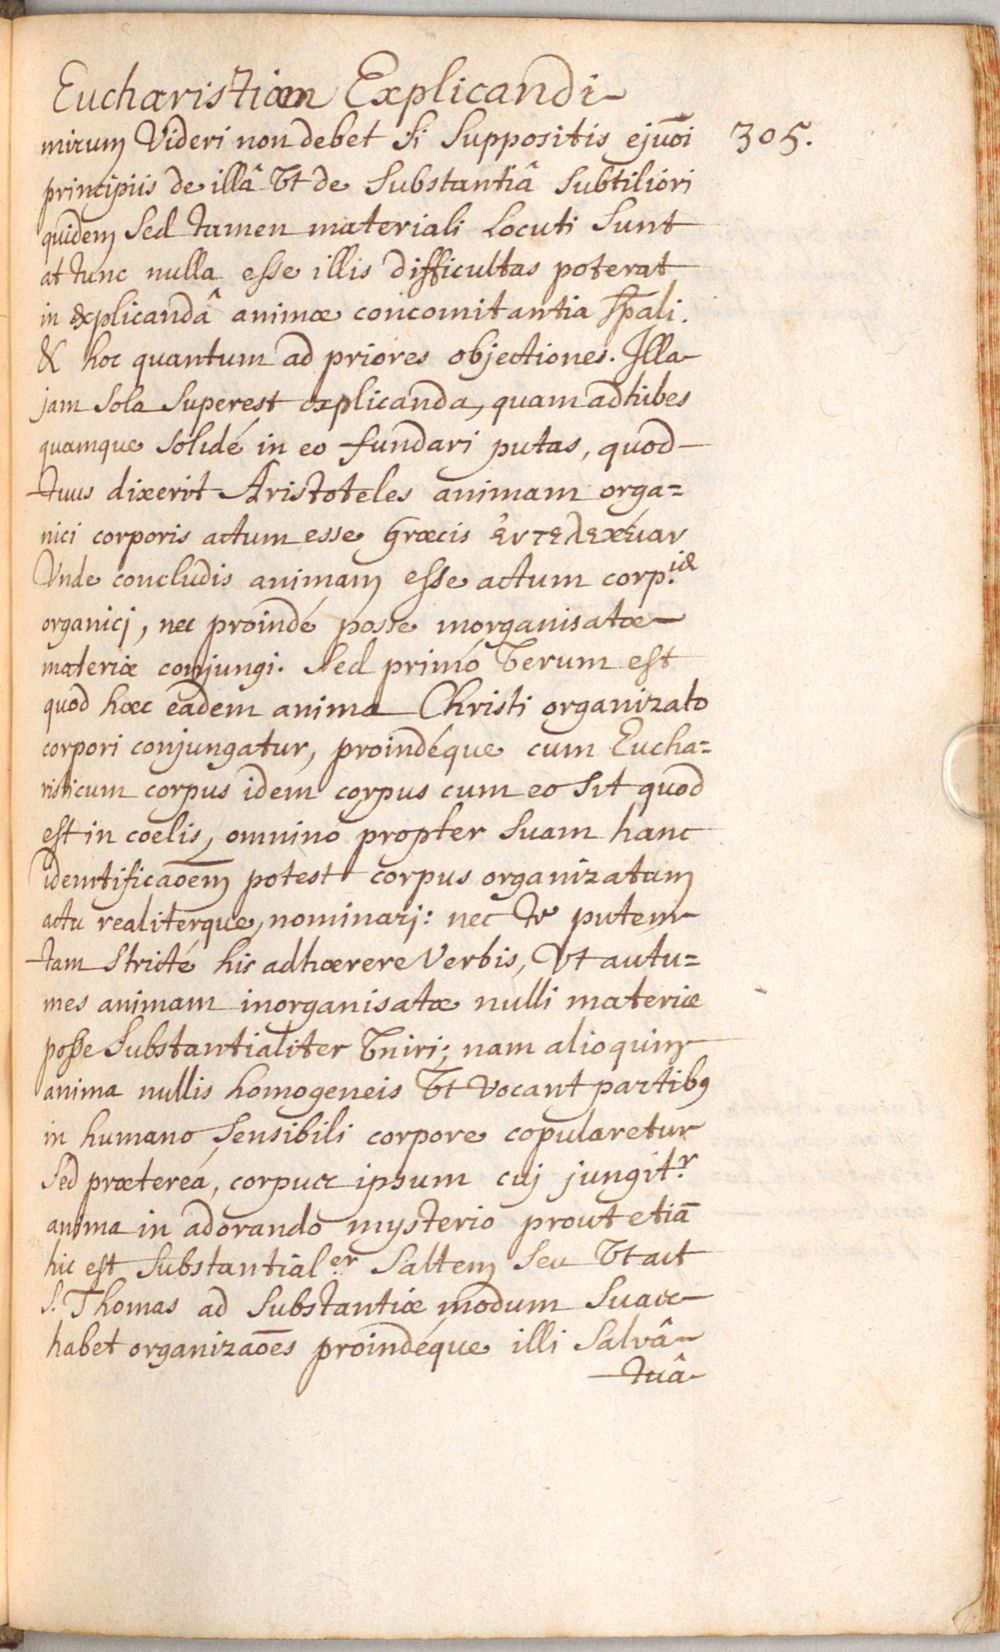 Eucharistiam Explicandi
305.
mirum Videri non debet si Suppositis ejuõi
principiis de illâ Vt de Substantiâ Subtiliori
quidem Sed tamen materiali Locuti Sunt
at tunc nulla esse illis difficultas poterat
in explicandâ animæ concomitantia
& hoc quantum ad priores objectiones. Illa
jam Sola Superest explicanda, quam adhibes
quamque Solidé in eo fundari putas, quod
tuus dixerit Aristoteles animam orga=
nici corporis actum esse Græcis ἐντελεχέιαν
Vnde concludis animam esse actum corp.is
organicj, nec proindé posse inorganisatæ
materiæ conjungi. Sed primó Verum est
quod hæc eadem anima Christi organizato
corpori conjungatur, proindéque cum Eucha=
risticum corpus idem corpus cum eo Sit quod
est in coelis, omnino propter Suam hanc
identificaõem potest corpus organizatum
actu realiterque, nominarj: nec te putem
tam Stricté his adhærere Verbis, Vt autu=
mes animam inorganisatæ nulli materiæ
posse Substantialiter Vniri; nam alioquin
anima nullis homogeneis Vt Vocant partibꝰ
in humano Sensibili corpore copularetur
Sed prætereá, corpus ipsum cuj jungitr
anima in adorando mysterio prout etiã
hic est Substantialer Saltem Seu Vt ait
S. Thomas ad Substantiæ modum Suas
habet organizaões proindéque illi Salvâ
tuâ